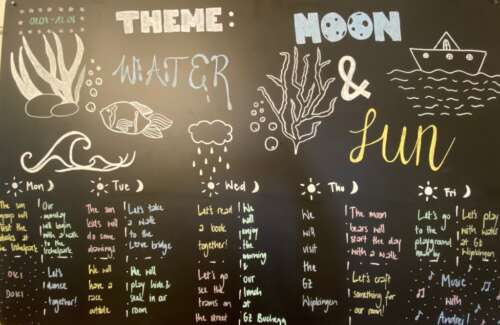 THEME:
MOON
WATER
&
SUN
Mon
The
sun
group will
that the
Irchelpark
OKI
DOKI
Our
monday
will begin
with a walk
to the
Irchelpark
Let's
dance
together!
Tue
The sun
will
do some
drawings!
We will
have a
race
outside
Let's take
a walk
to the
Love bridge
We will
play hide &
seek in our
room
Wed
Let's read
a book
together!
Let's go
see the
trams on
the street
We
will
enjoy
the
morning
&
our
lunch
at
GZ Buchegg
Thu
We
will
visit
the
GZ
Wipkingen
The moon
bears will
start the day
with a walk
Let's craft
something for
our room!
Fri
Let's go
to the
playground
Let's play
with water
at GZ
Music
with
Andrej!